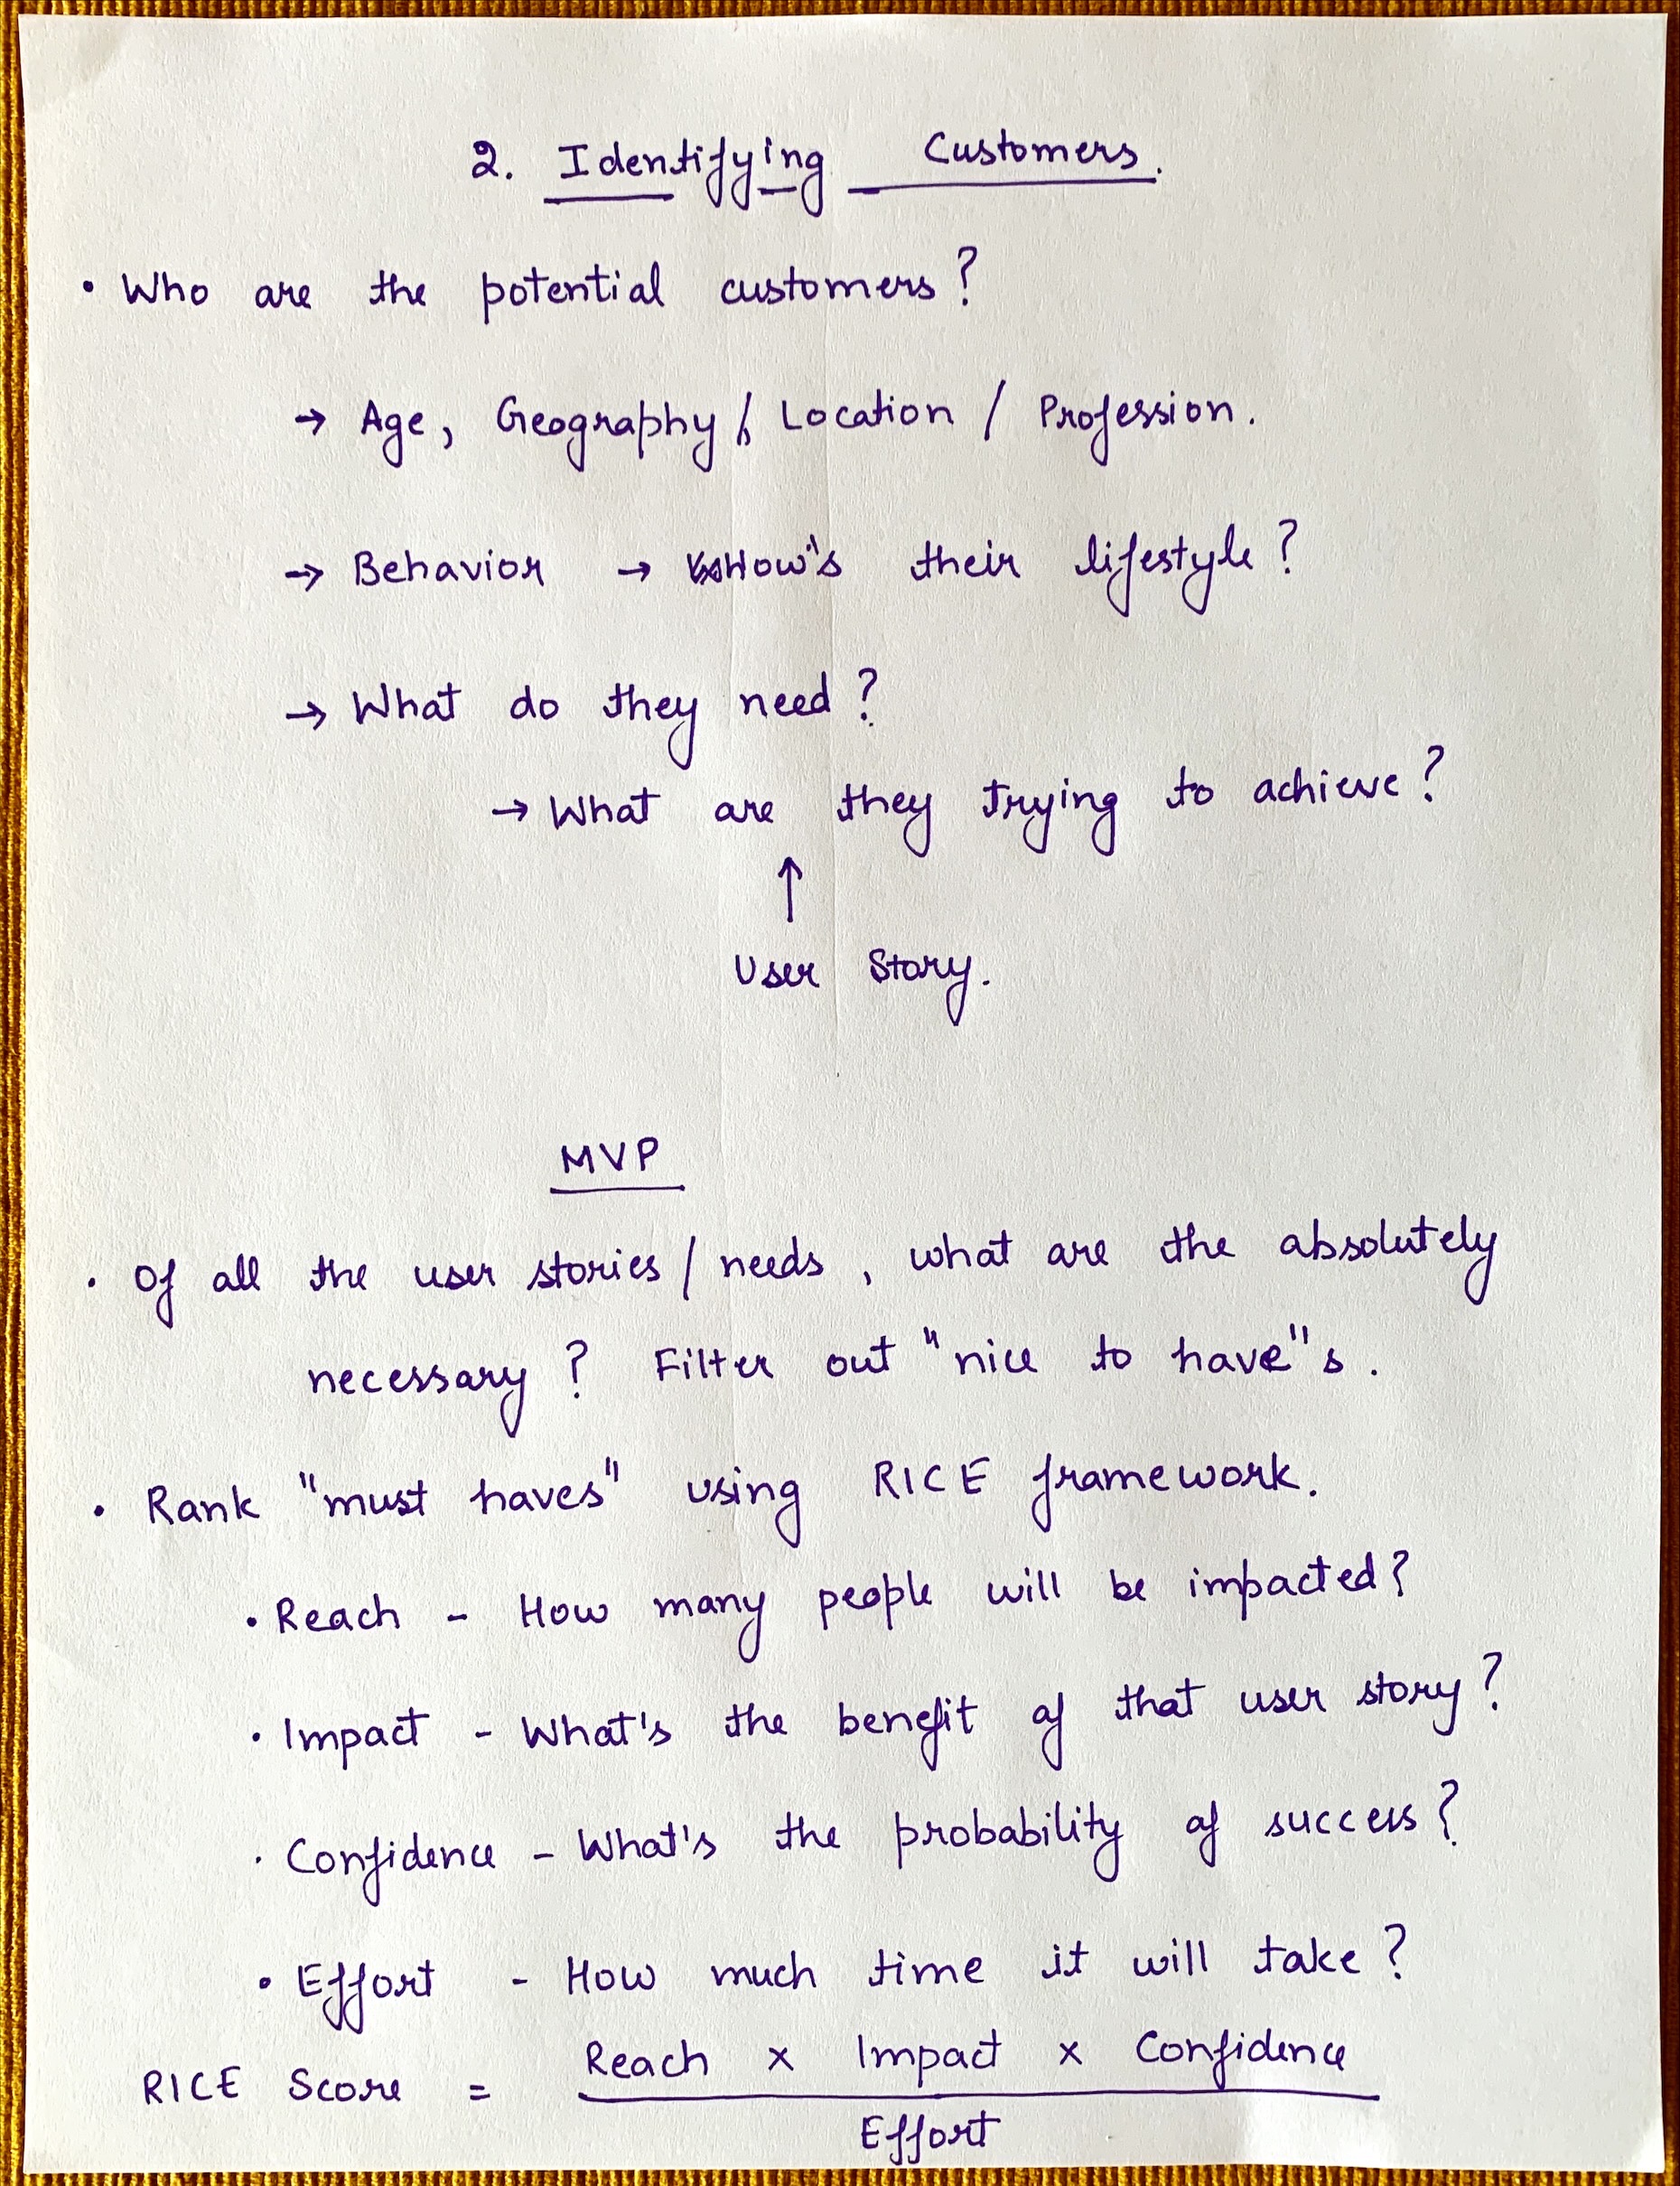 2. Identifying Customers.
• Who are the potential customers?
→ Age, Geography / Location / Profession.
→ Behavior → How's their lifestyle?
→ What do they need?
→ What are they trying to achieve?
↑
User Story.
MVP
• Of all the user stories / needs, what are the absolutely
necessary? Filter out "nice to have"s.
• Rank "must haves" using RICE framework.
• Reach - How many people will be impacted?
• Impact - What's the benefit of that user story?
• Confidence - What's the probability of success?
• Effort - How much time it will take?
Reach x Impact x Confidence
RICE Score =
Effort